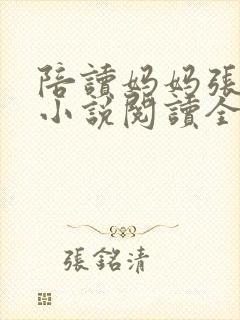 陪讀媽媽張
小說閱讀全
張銘清